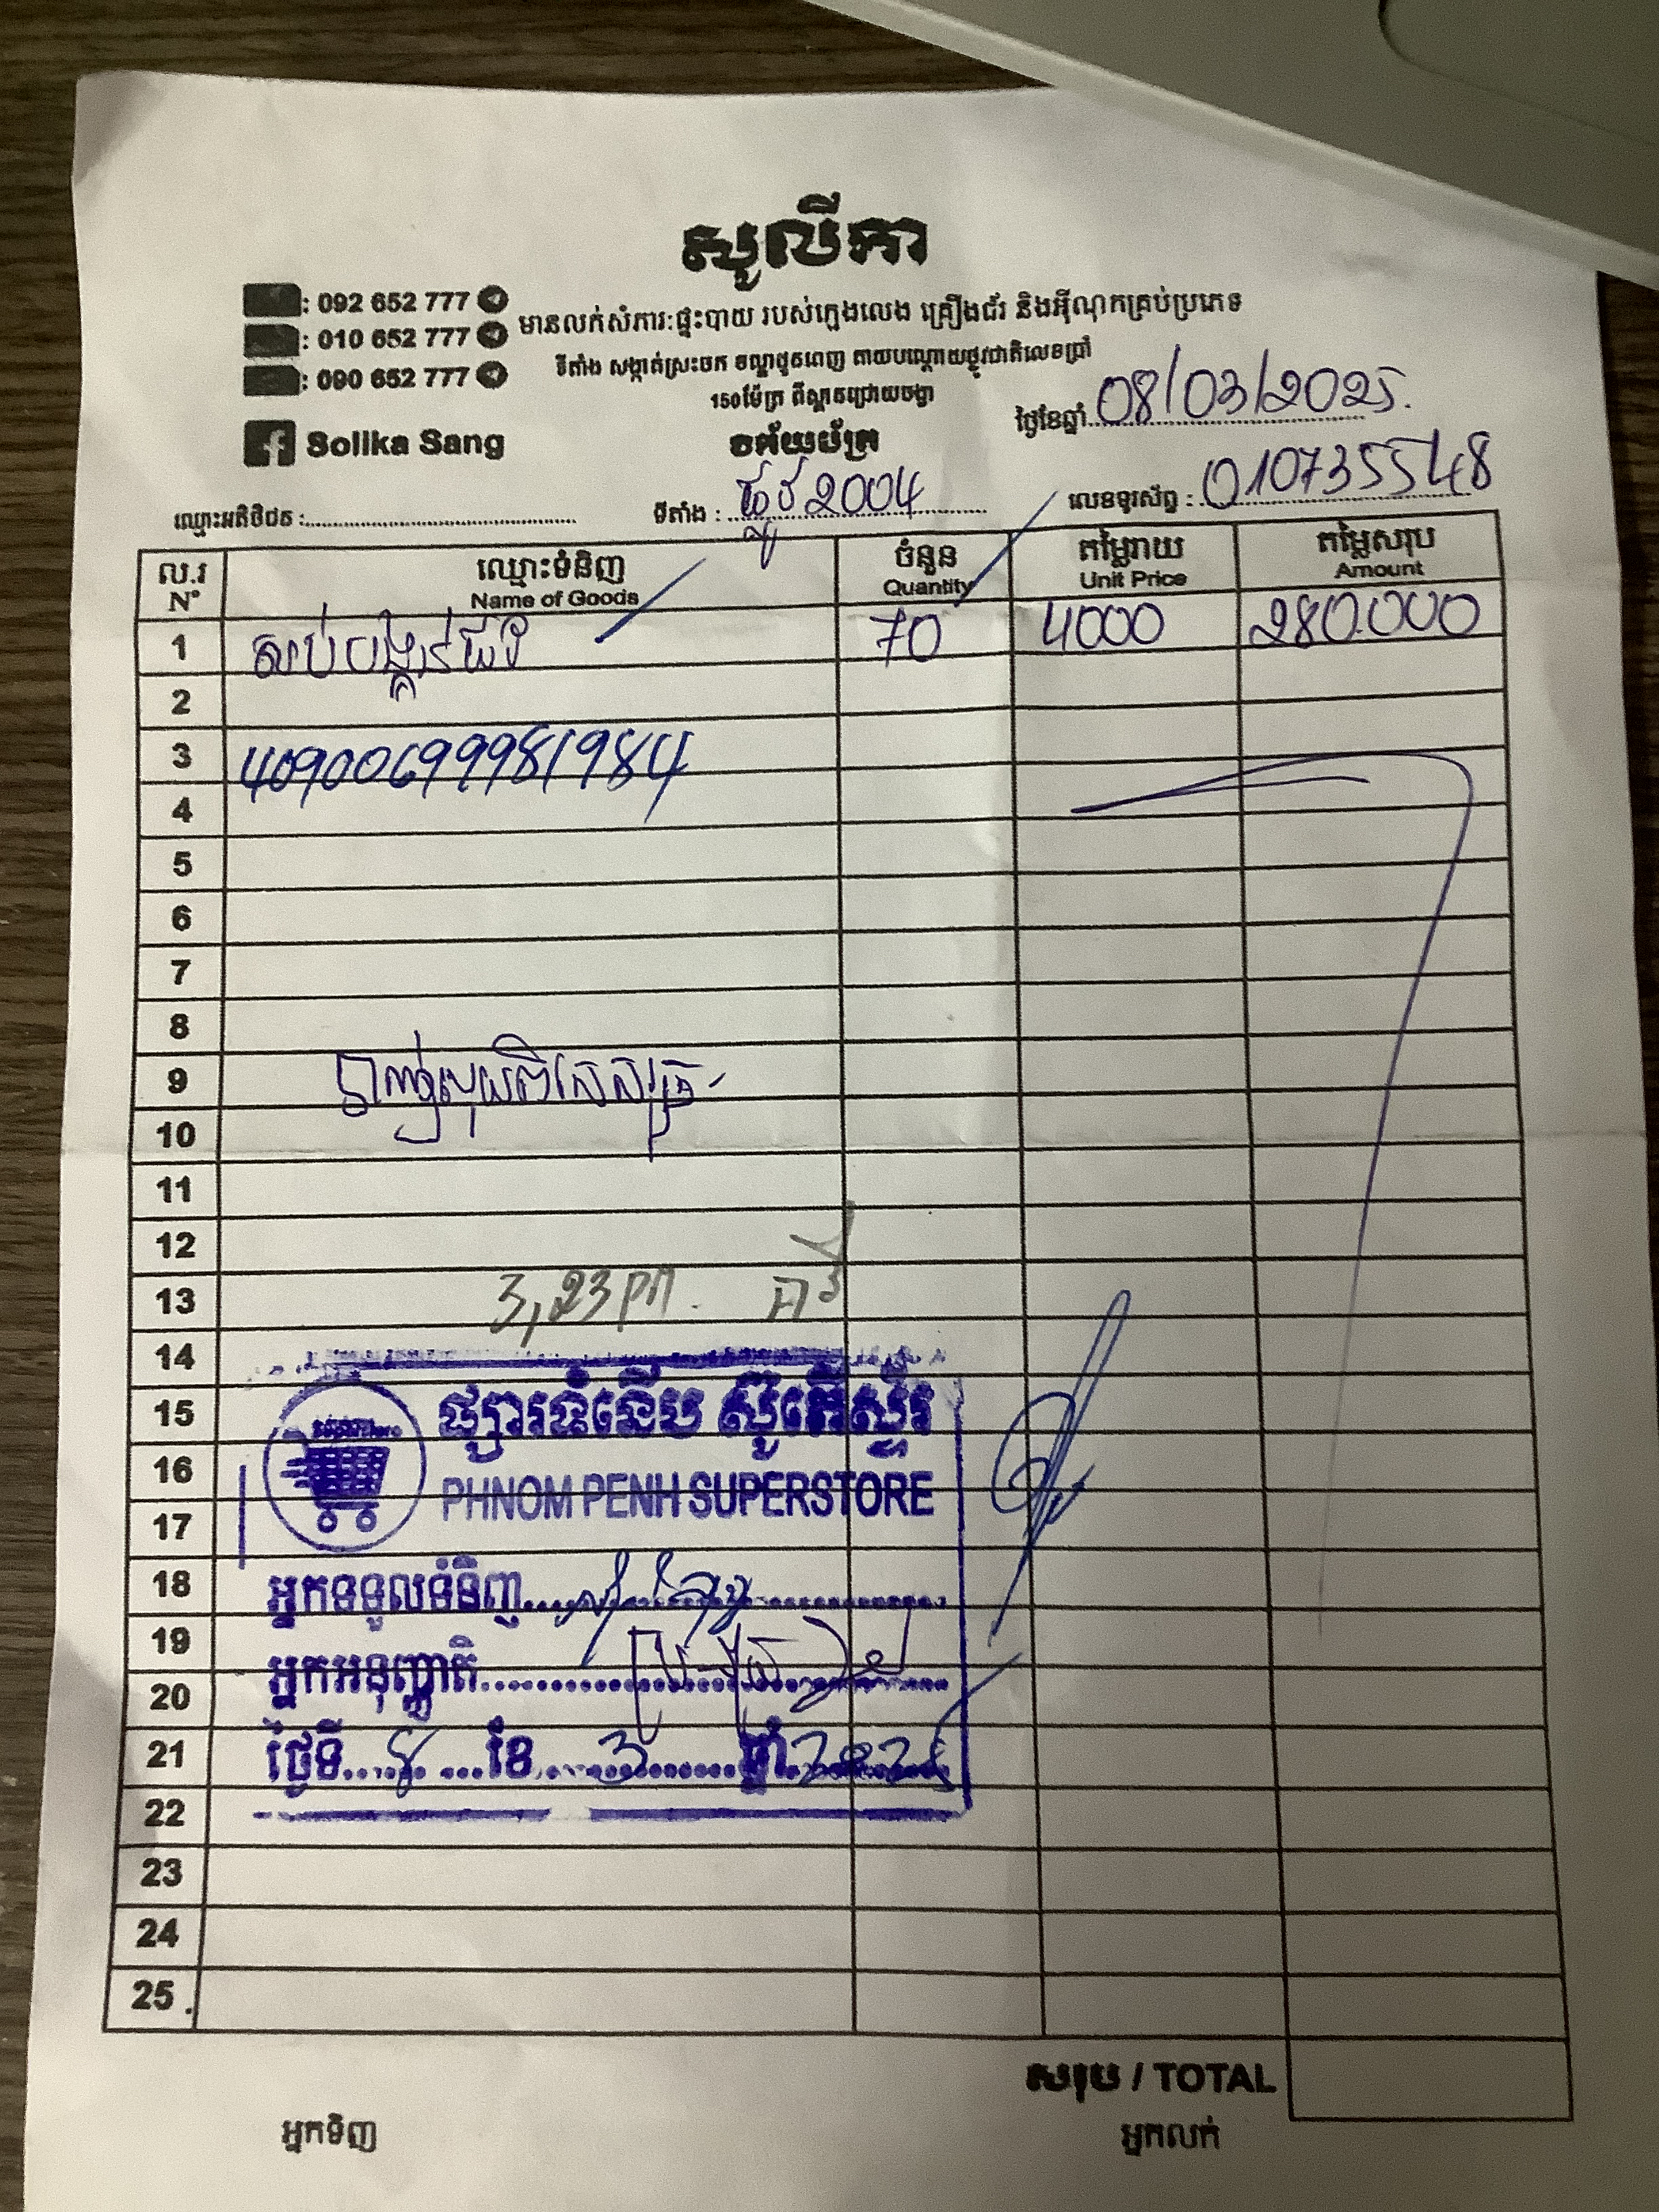 សូលីកា
: 092 652 777
: 010 652 777
: 090 652 777
មានលក់សំភារៈផ្ទះបាយ របស់ក្មេងលេង គ្រឿងជ័រ និងអ៊ីណុកគ្រប់ប្រភេទ
ទីតាំង សង្កាត់ស្រះចក ខណ្ឌដូនពេញ តាមបណ្តោយផ្លូវជាតិលេខប្រាំ
150ម៉ែត្រ ពីស្ពានជ្រោយចង្វា
Solika Sang
វិក្កយប័ត្រ
ថ្ងៃខែឆ្នាំ 08/03/2025.
ឈ្មោះអតិថិជន :
ទីតាំង : ផ្លូវ 2004
លេខទូរស័ព្ទ : 010735548
ល.រ ឈ្មោះទំនិញ ចំនួន តម្លៃរាយ តម្លៃសរុប
N° Name of Goods Quantity Unit Price Amount
1 70 4000 280.000
2
3 40900699981984
4
5
6
7
8
9
10
11
12
13 3,23 pm.
14
15 ផ្សារទំនើប ស៊ូភើស្ទ័រ
16 PHNOM PENH SUPERSTORE
17
18 អ្នកទទួលទំនិញ
19 អ្នកអនុញ្ញាតិ
20
21 ថ្ងៃទី 8 ខែ 3 ឆ្នាំ 2025
22
23
24
25
សរុប / TOTAL
អ្នកទិញ អ្នកលក់